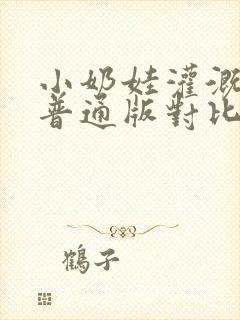 小奶娃灌溉
普通版對比
鶴子